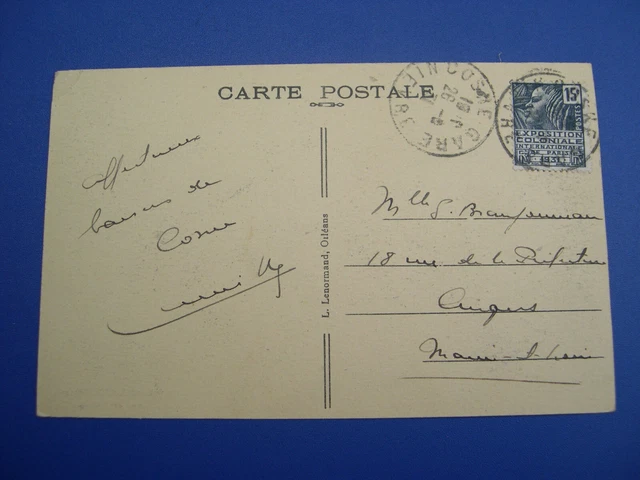 CARTE POSTALE
COSNE GARE
NIÈVRE
15c
POSTES
EXPOSITION
COLONIALE
INTERNATIONALE
PARIS
1931
affectueux
baisers de
Cosne
L. Lenormand, Orléans
Mlle G.
18 rue de la Préfecture
Angers
Maine-et-Loire